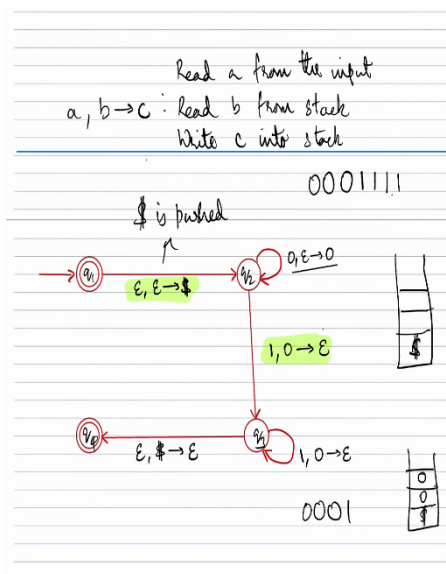 Read a from the input
a, b→c : Read b from stack
Write c into stack
0001111
$ is pushed
q₁
ε, ε→$
q₂
0, ε→0
$
1, 0→ε
q₄
ε, $→ε
q₃
1, 0→ε
0001
0
0
$